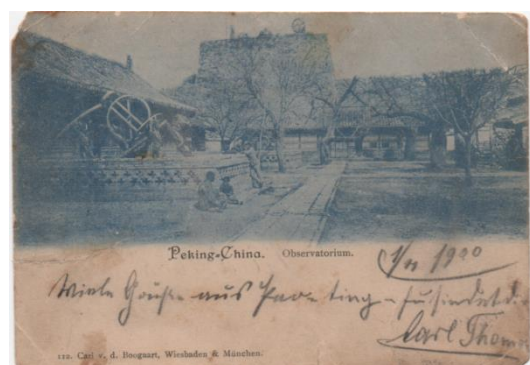 Peking-China. Observatorium.
1900
Viele Grüße aus Pao-ting-fu sendet
Carl Thoma
112. Carl v. d. Boogaart, Wiesbaden & München.